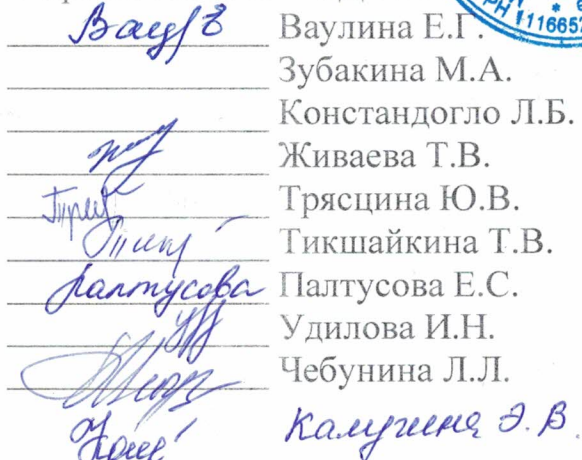 Ваулина Е.Г.
Зубакина М.А.
Констандогло Л.Б.
Живаева Т.В.
Трясцина Ю.В.
Тикшайкина Т.В.
Палтусова Палтусова Е.С.
Удилова И.Н.
Чебунина Л.Л.
Калугина Э.В.